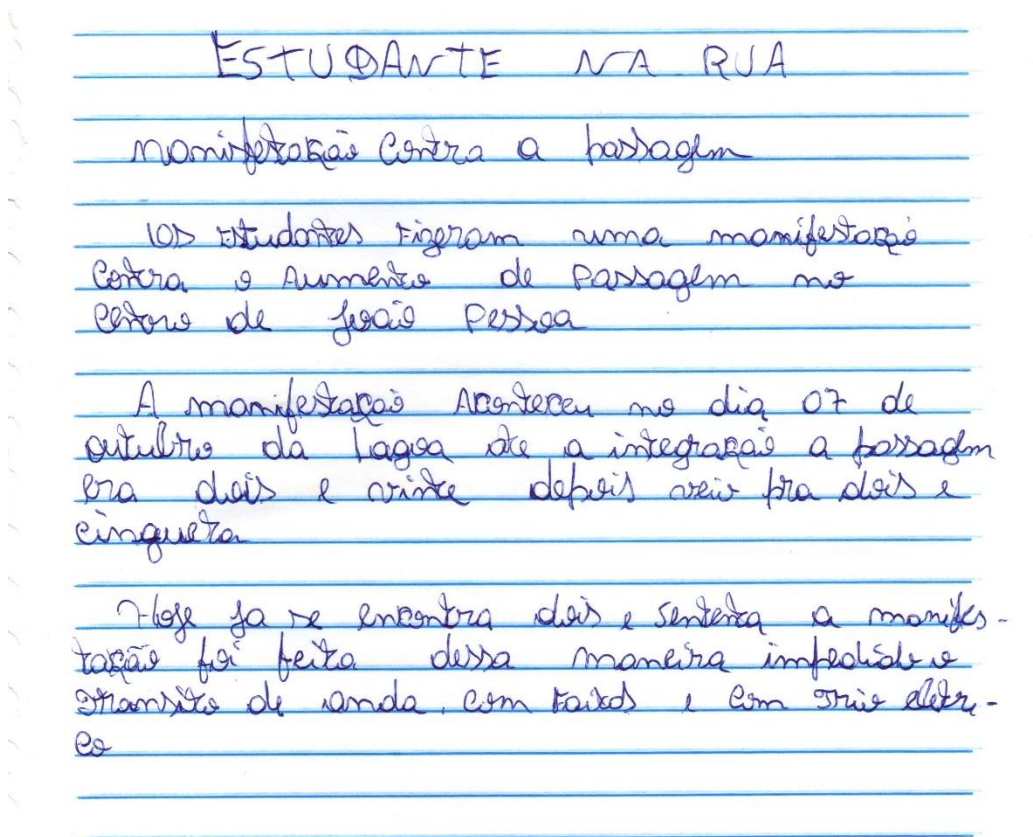 ESTUDANTE NA RUA
manifetação contra a passagem
OS Estudantes Fizeram uma manifestação
contra o Aumento de Passagem no
centro de João Pessoa
A manifestação Aconteceu no dia 07 de
outubro da Lagoa ate a integração a passagem
era dois e vinte depois veio pra dois e
cinqueta
Hoje ja se encontra dois e sententa a manifes-
tação foi feita dessa maneira impedido o
transito de anda. com faixas e com Trio eletri-
co